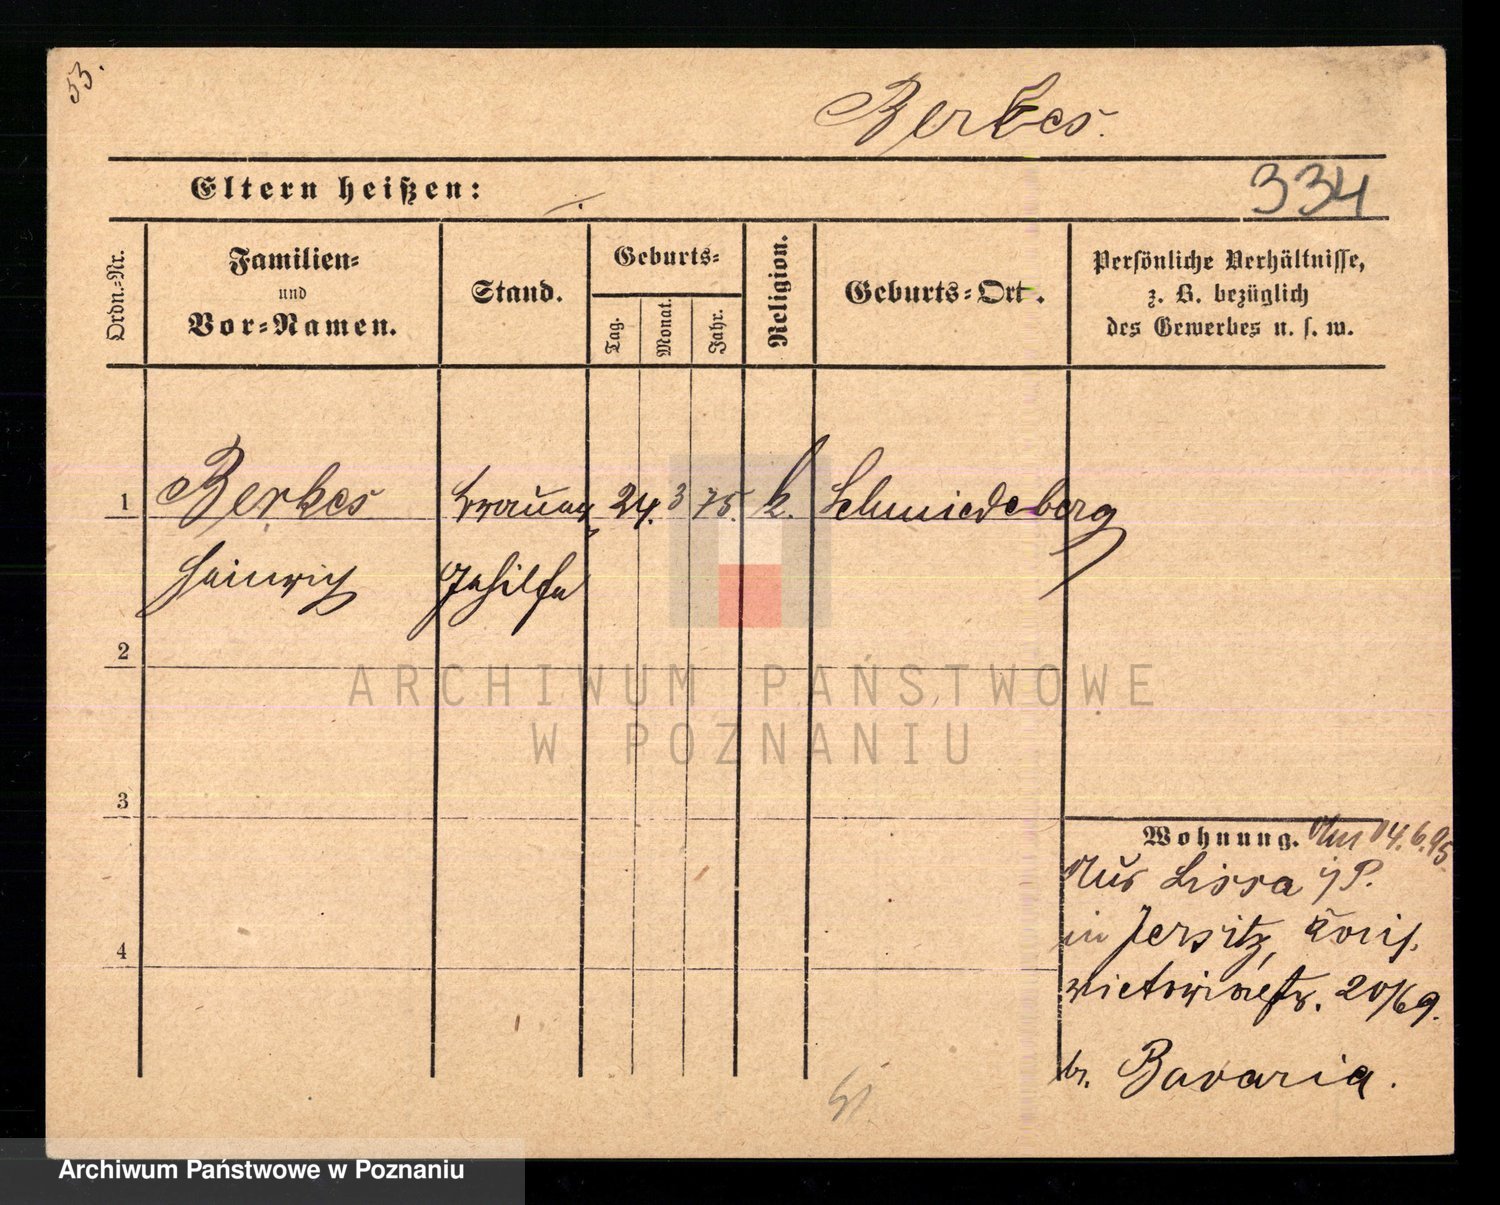 53.
Berkes.
Eltern heißen:
334
Ordn.-Nr.
Familien-
und
Vor-Namen.
Stand.
Geburts-
Tag.
Monat.
Jahr.
Religion.
Geburts-Ort.
Persönliche Verhältnisse,
z. B. bezüglich
des Gewerbes u. s. w.
1 Berkes Brauer 24. 3 75. k. Schmiedeberg
Heinrich Gehilfe
2
3
4
Wohnung. 14.6.95.
Aus Lissa i/P.
in Jersitz,
20/69.
b. Bavaria.
ARCHIWUM PAŃSTWOWE
W POZNANIU
Archiwum Państwowe w Poznaniu